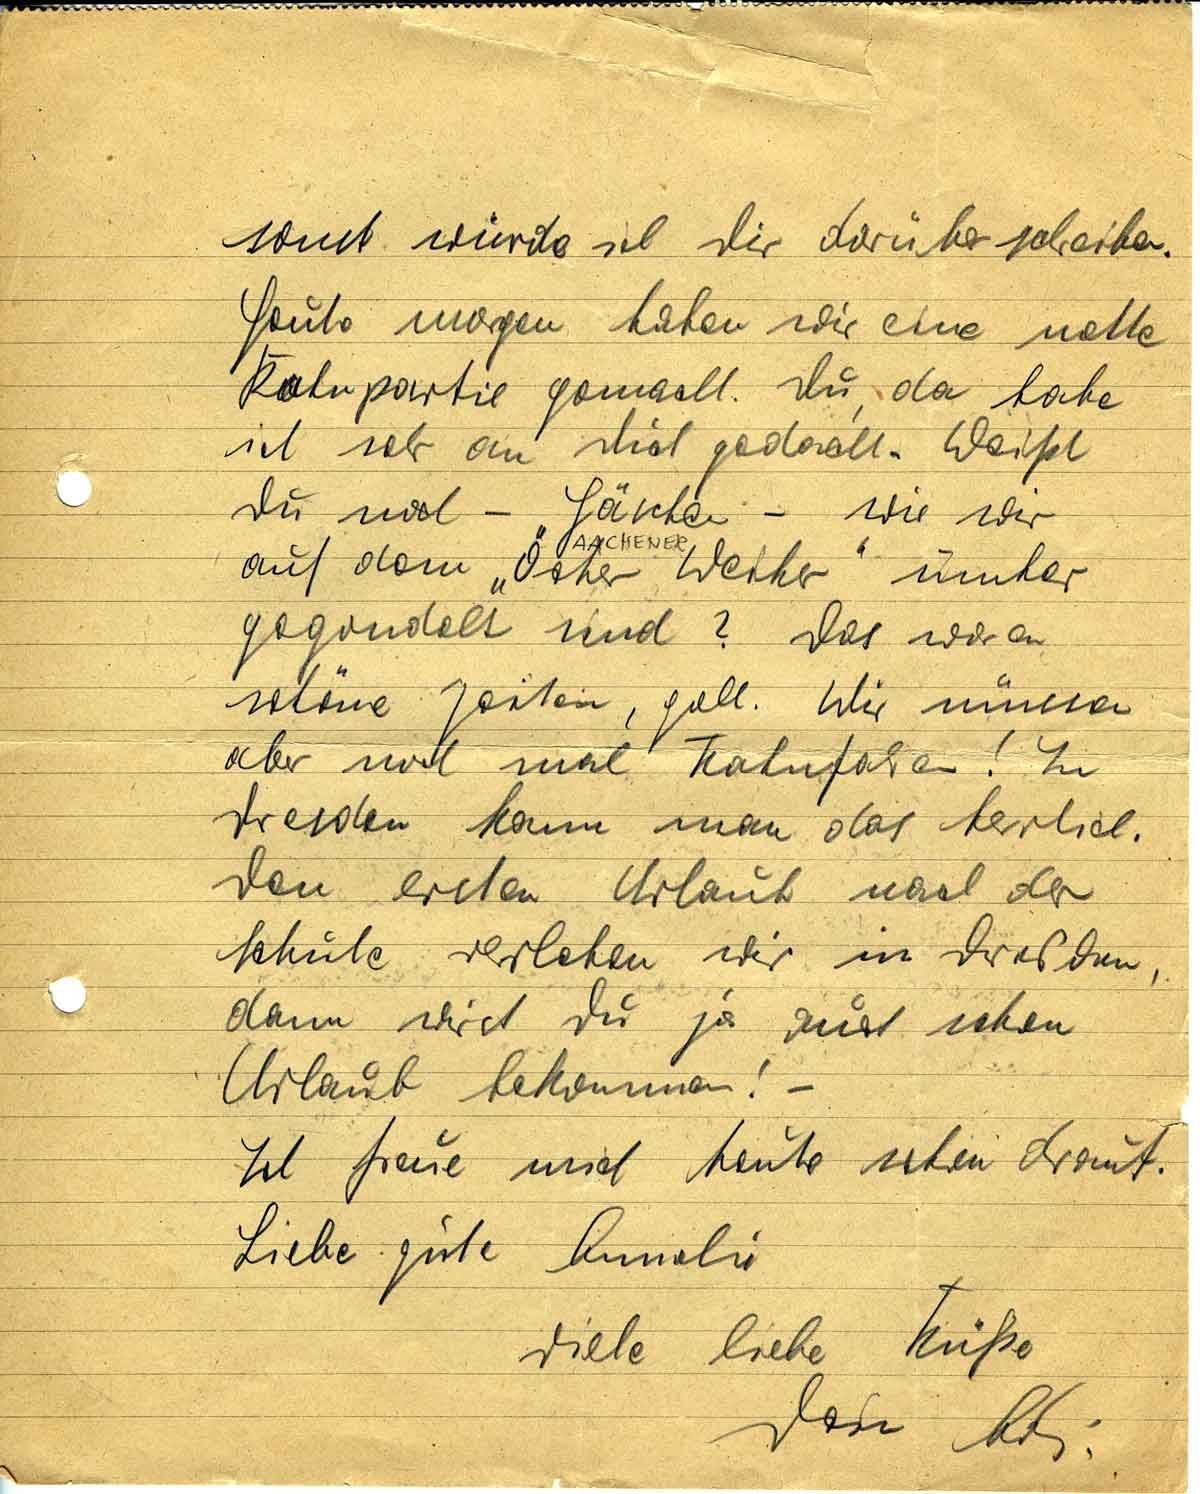 sonst würde ich Dir darüber schreiben.
Heute morgen haben wir eine nette
Kahnpartie gemacht. Du, da habe
ich sehr an Dich gedacht. Weißt
Du noch – „Häschen – wie wir
AACHENER
auf dem „Öcher Weiher“ umher
gegondelt sind? Das waren
schöne Zeiten, gell. Wir müssen
aber noch mal Kahnfahren! In
Dresden kann man das herrlich.
Den ersten Urlaub nach der
Schule verleben wir in Dresden,
dann wirst Du ja auch schon
Urlaub bekommen! –
Ich freue mich heute schon drauf.
Liebe gute Annelie
viele liebe Küße
Dein